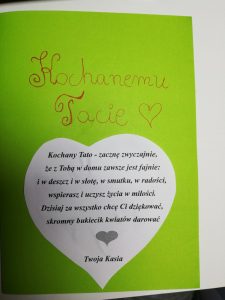 Kochanemu
Tacie ♡
Kochany Tato - zacznę zwyczajnie,
że z Tobą w domu zawsze jest fajnie:
i w deszcz i w słotę, w smutku, w radości,
wspierasz i uczysz życia w miłości.
Dzisiaj za wszystko chcę Ci dziękować,
skromny bukiecik kwiatów darować
Twoja Kasia